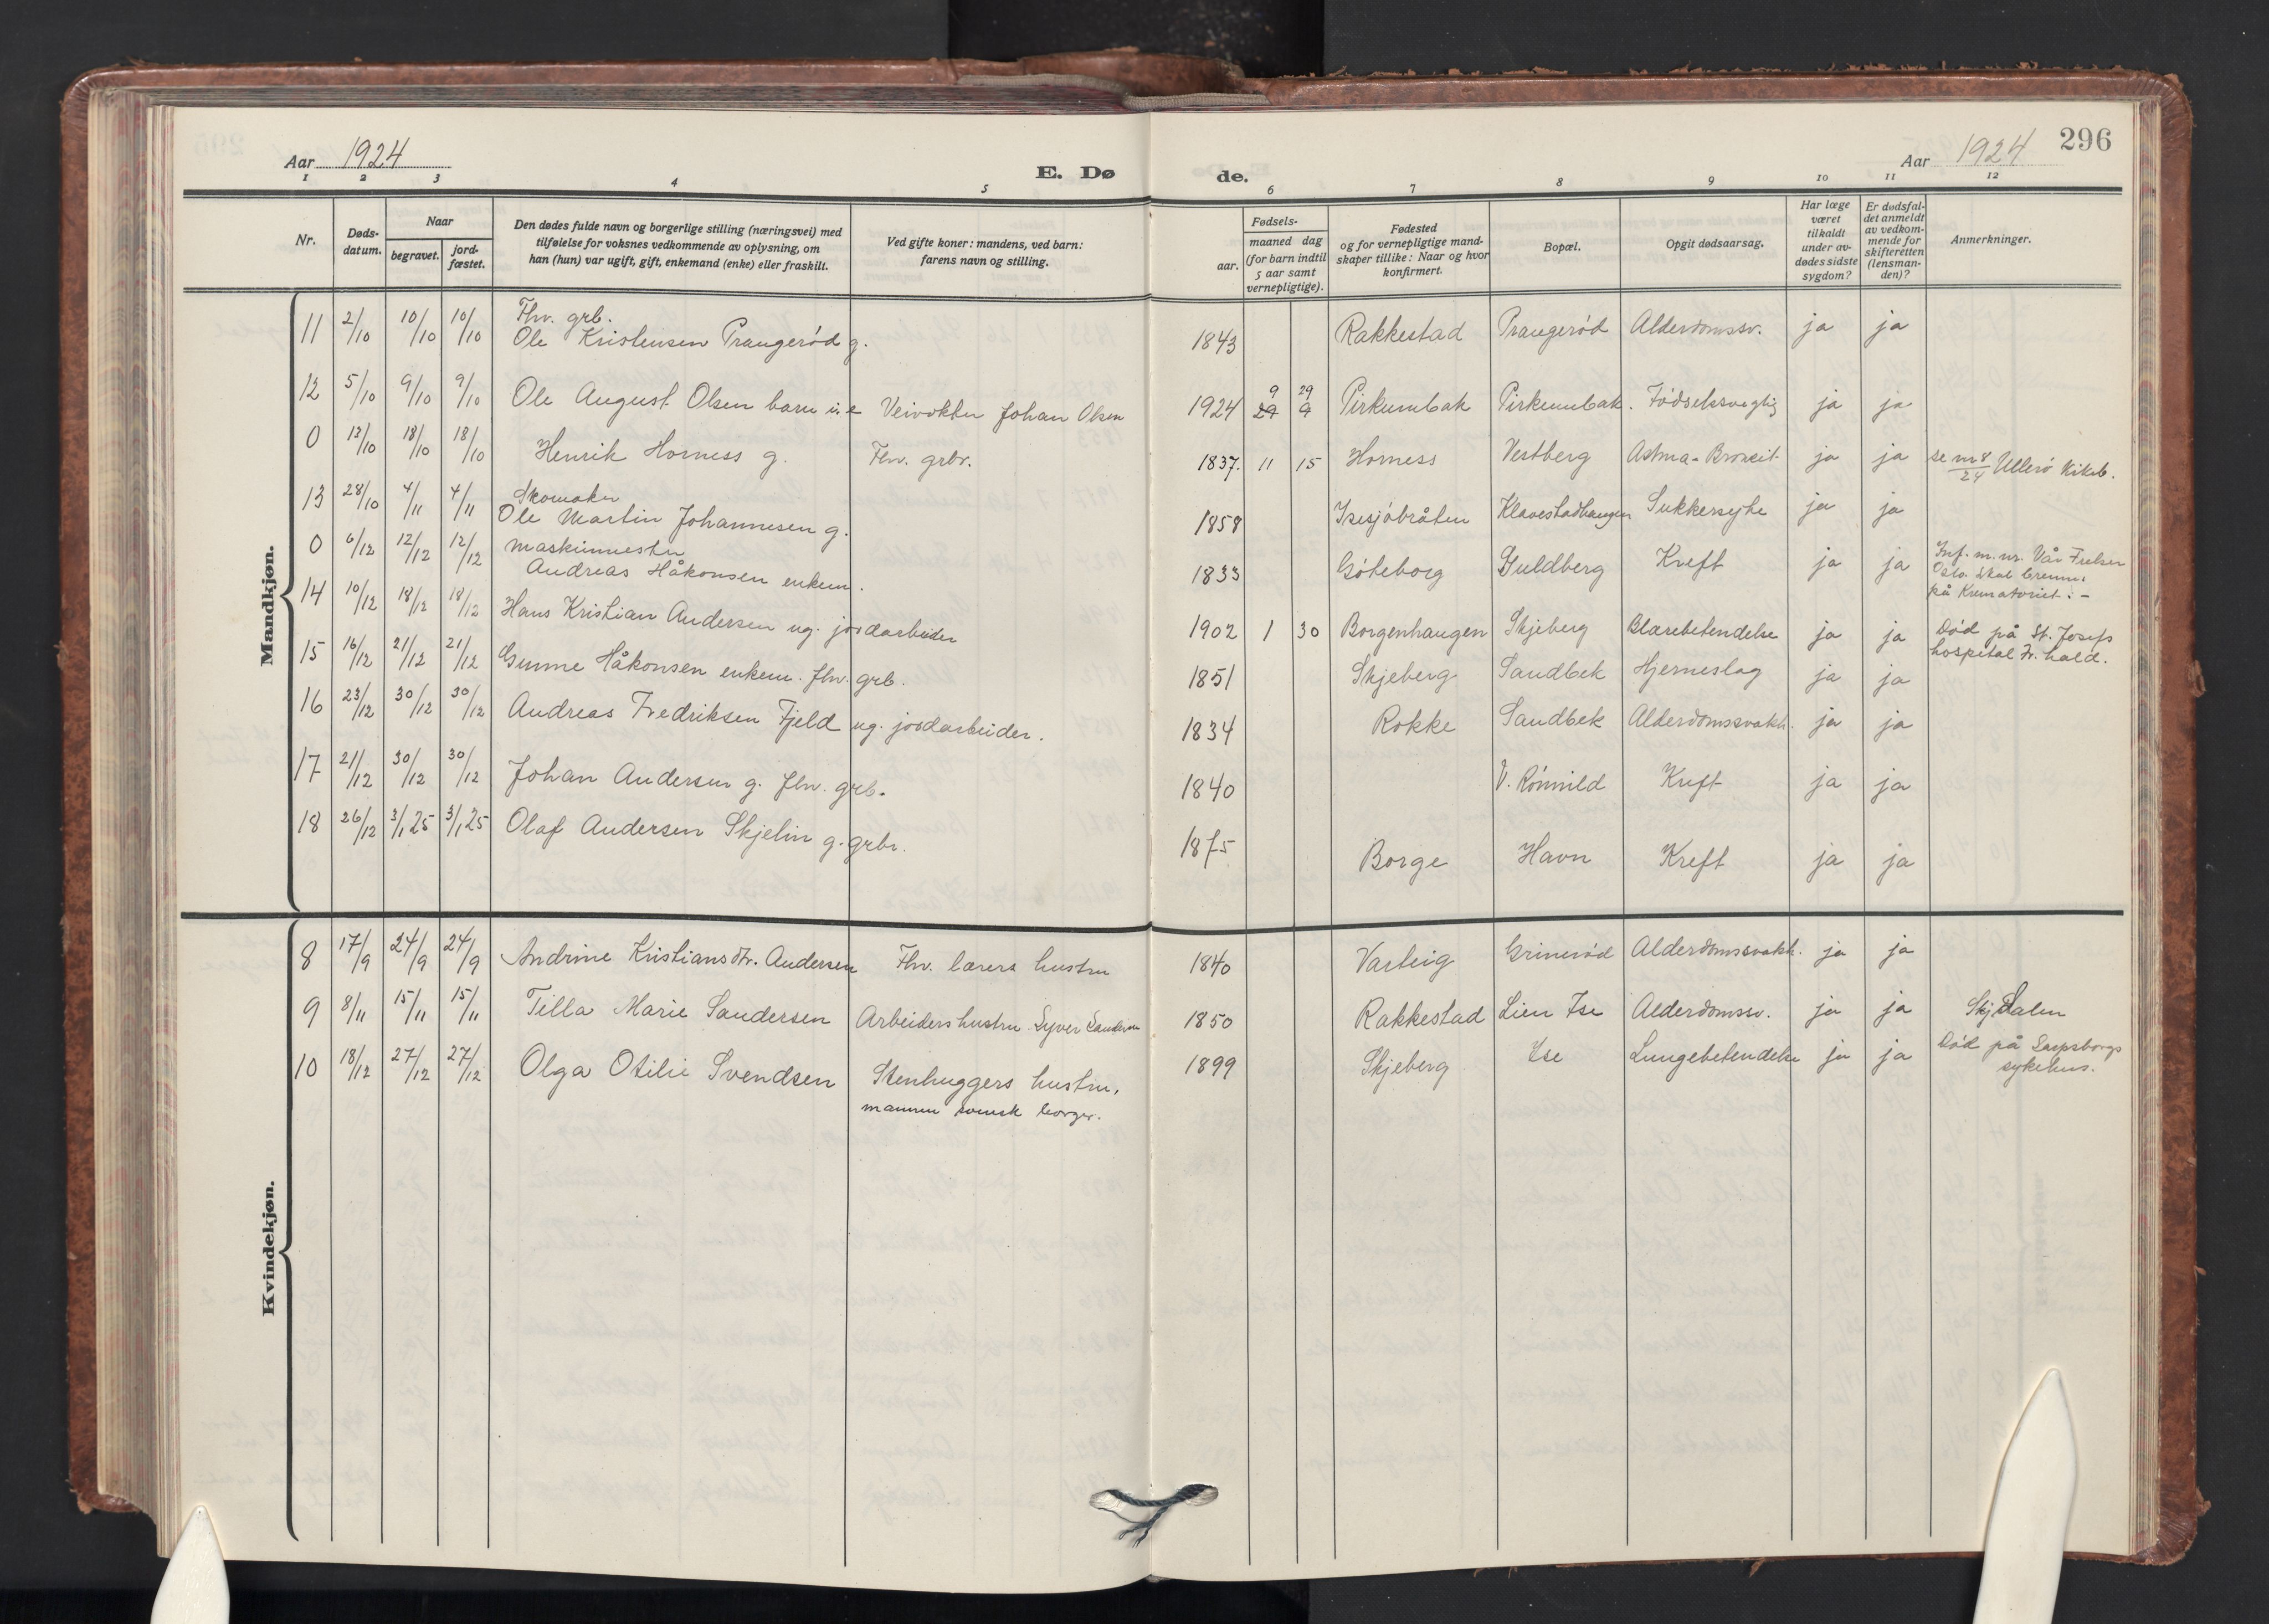 Aar 1924
E. Dø
de.
Aar 1924
296
1 2 3 4 5 6 7 8 9 10 11 12
Nr.
Døds-
datum.
Naar
begravet.
jord-
fæstet.
Den dødes fulde navn og borgerlige stilling (næringsvei) med
tilføielse for voksnes vedkommende av oplysning, om
han (hun) var ugift, gift, enkemand (enke) eller fraskilt.
Ved gifte koner: mandens, ved barn:
farens navn og stilling.
Fødsels-
aar.
maaned dag
(for barn indtil
5 aar samt
vernepligtige).
Fødested
og for vernepligtige mand-
skaper tillike: Naar og hvor
konfirmert.
Bopæl.
Opgit dødsaarsag.
Har læge
været
tilkaldt
under av-
dødes sidste
sygdom?
Er dødsfal-
det anmeldt
av vedkom-
mende for
skifteretten
(lensman-
den)?
Anmerkninger.
Mandkjøn.
Fhv. grb.
11 2/10 10/10 10/10 Ole Kristensen Prangerød g. 1843 Rakkestad Prangerød Alderdomssv. ja ja
12 5/10 9/10 9/10 Ole August Olsen barn i. e Veivokter Johan Olsen 1924 9 29 Pirkumbak Pirkumbak. Fødselssvaglig ja ja
29 9
0 13/10 18/10 18/10 Henrik Horness g. Fhv. grbr. 1837. 11 15 Horness Vestberg Astma-Bronkit ja ja se nr 8/24 Ullerø Kikeb.
Skomaker
13 28/10 4/11 4/11 Ole Martin Johannesen g. 1858 Isesjøbråten Klavestadhaugen Sukkersyke ja ja
Maskinmester
0 6/12 12/12 12/12 Andreas Håkonsen enkem. 1833 Göteborg Guldberg Kreft ja ja Inf. m. nr. Vår Frelser
Oslo. Skal brennes
på Krematoriet. -
14 10/12 18/12 18/12 Hans Kristian Andersen ug. jordarbeider 1902 1 30 Borgenhaugen Skjeberg Blærebetendelse ja ja Død på St. Josefs
hospital Fr. hald.
15 16/12 21/12 21/12 Gunne Håkonsen enkem. fhv. grb. 1851 Skjeberg Sandbek Hjerneslag ja ja
16 23/12 30/12 30/12 Andreas Fredriksen Fjeld ug. jordarbeider. 1834 Rokke Sandbek Alderdomssvakh. ja ja
17 21/12 30/12 30/12 Johan Andersen g. fhv. grb. 1840 V. Rønnild Kreft ja ja
18 26/12 3/1 25 3/1 25 Olaf Andersen Skjelin g. grbr. 1875 Borge Havn Kreft ja ja
Kvindekjøn.
8 17/9 24/9 24/9 Andrine Kristiansdtr. Andersen Fhv. lærers hustru 1840 Varteig Grinerød Alderdomssvakh. ja ja
9 8/11 15/11 15/11 Tilla Marie Sandersen Arbeiders hustru. Syver Sandersen 1850 Rakkestad Lien Ise Alderdomssv. ja ja Skjedalen
10 18/12 27/12 27/12 Olga Otilie Svendsen Stenhuggers hustru. 1899 Skjeberg Ise Lungebetendelse ja ja Død på Sarpsborgs
sykehus.
mannen svensk borger.